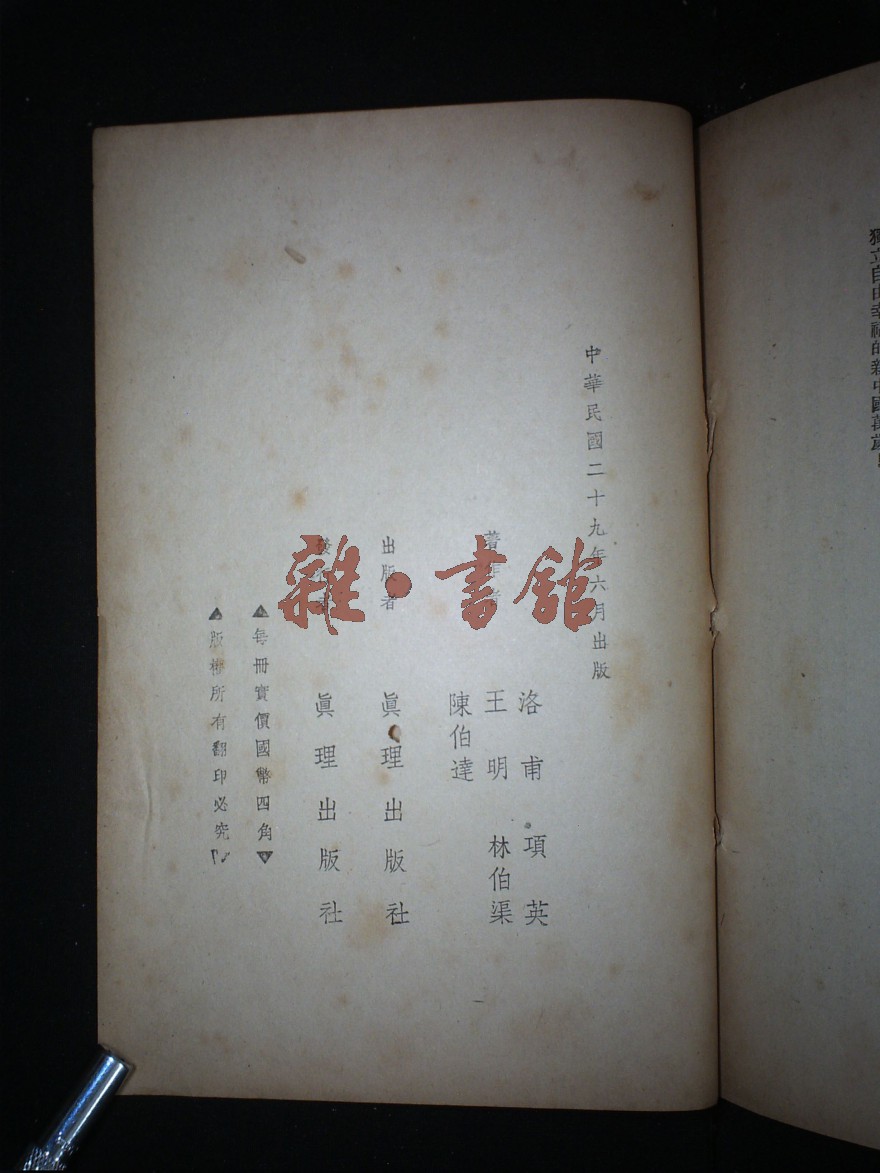 獨立自由幸福的新中國萬歲！
中華民國二十九年六月出版
著作者
洛甫 項英
王明 林伯渠
陳伯達
出版者 眞理出版社
發行者 眞理出版社
每冊實價國幣四角
版權所有翻印必究
雜·書館